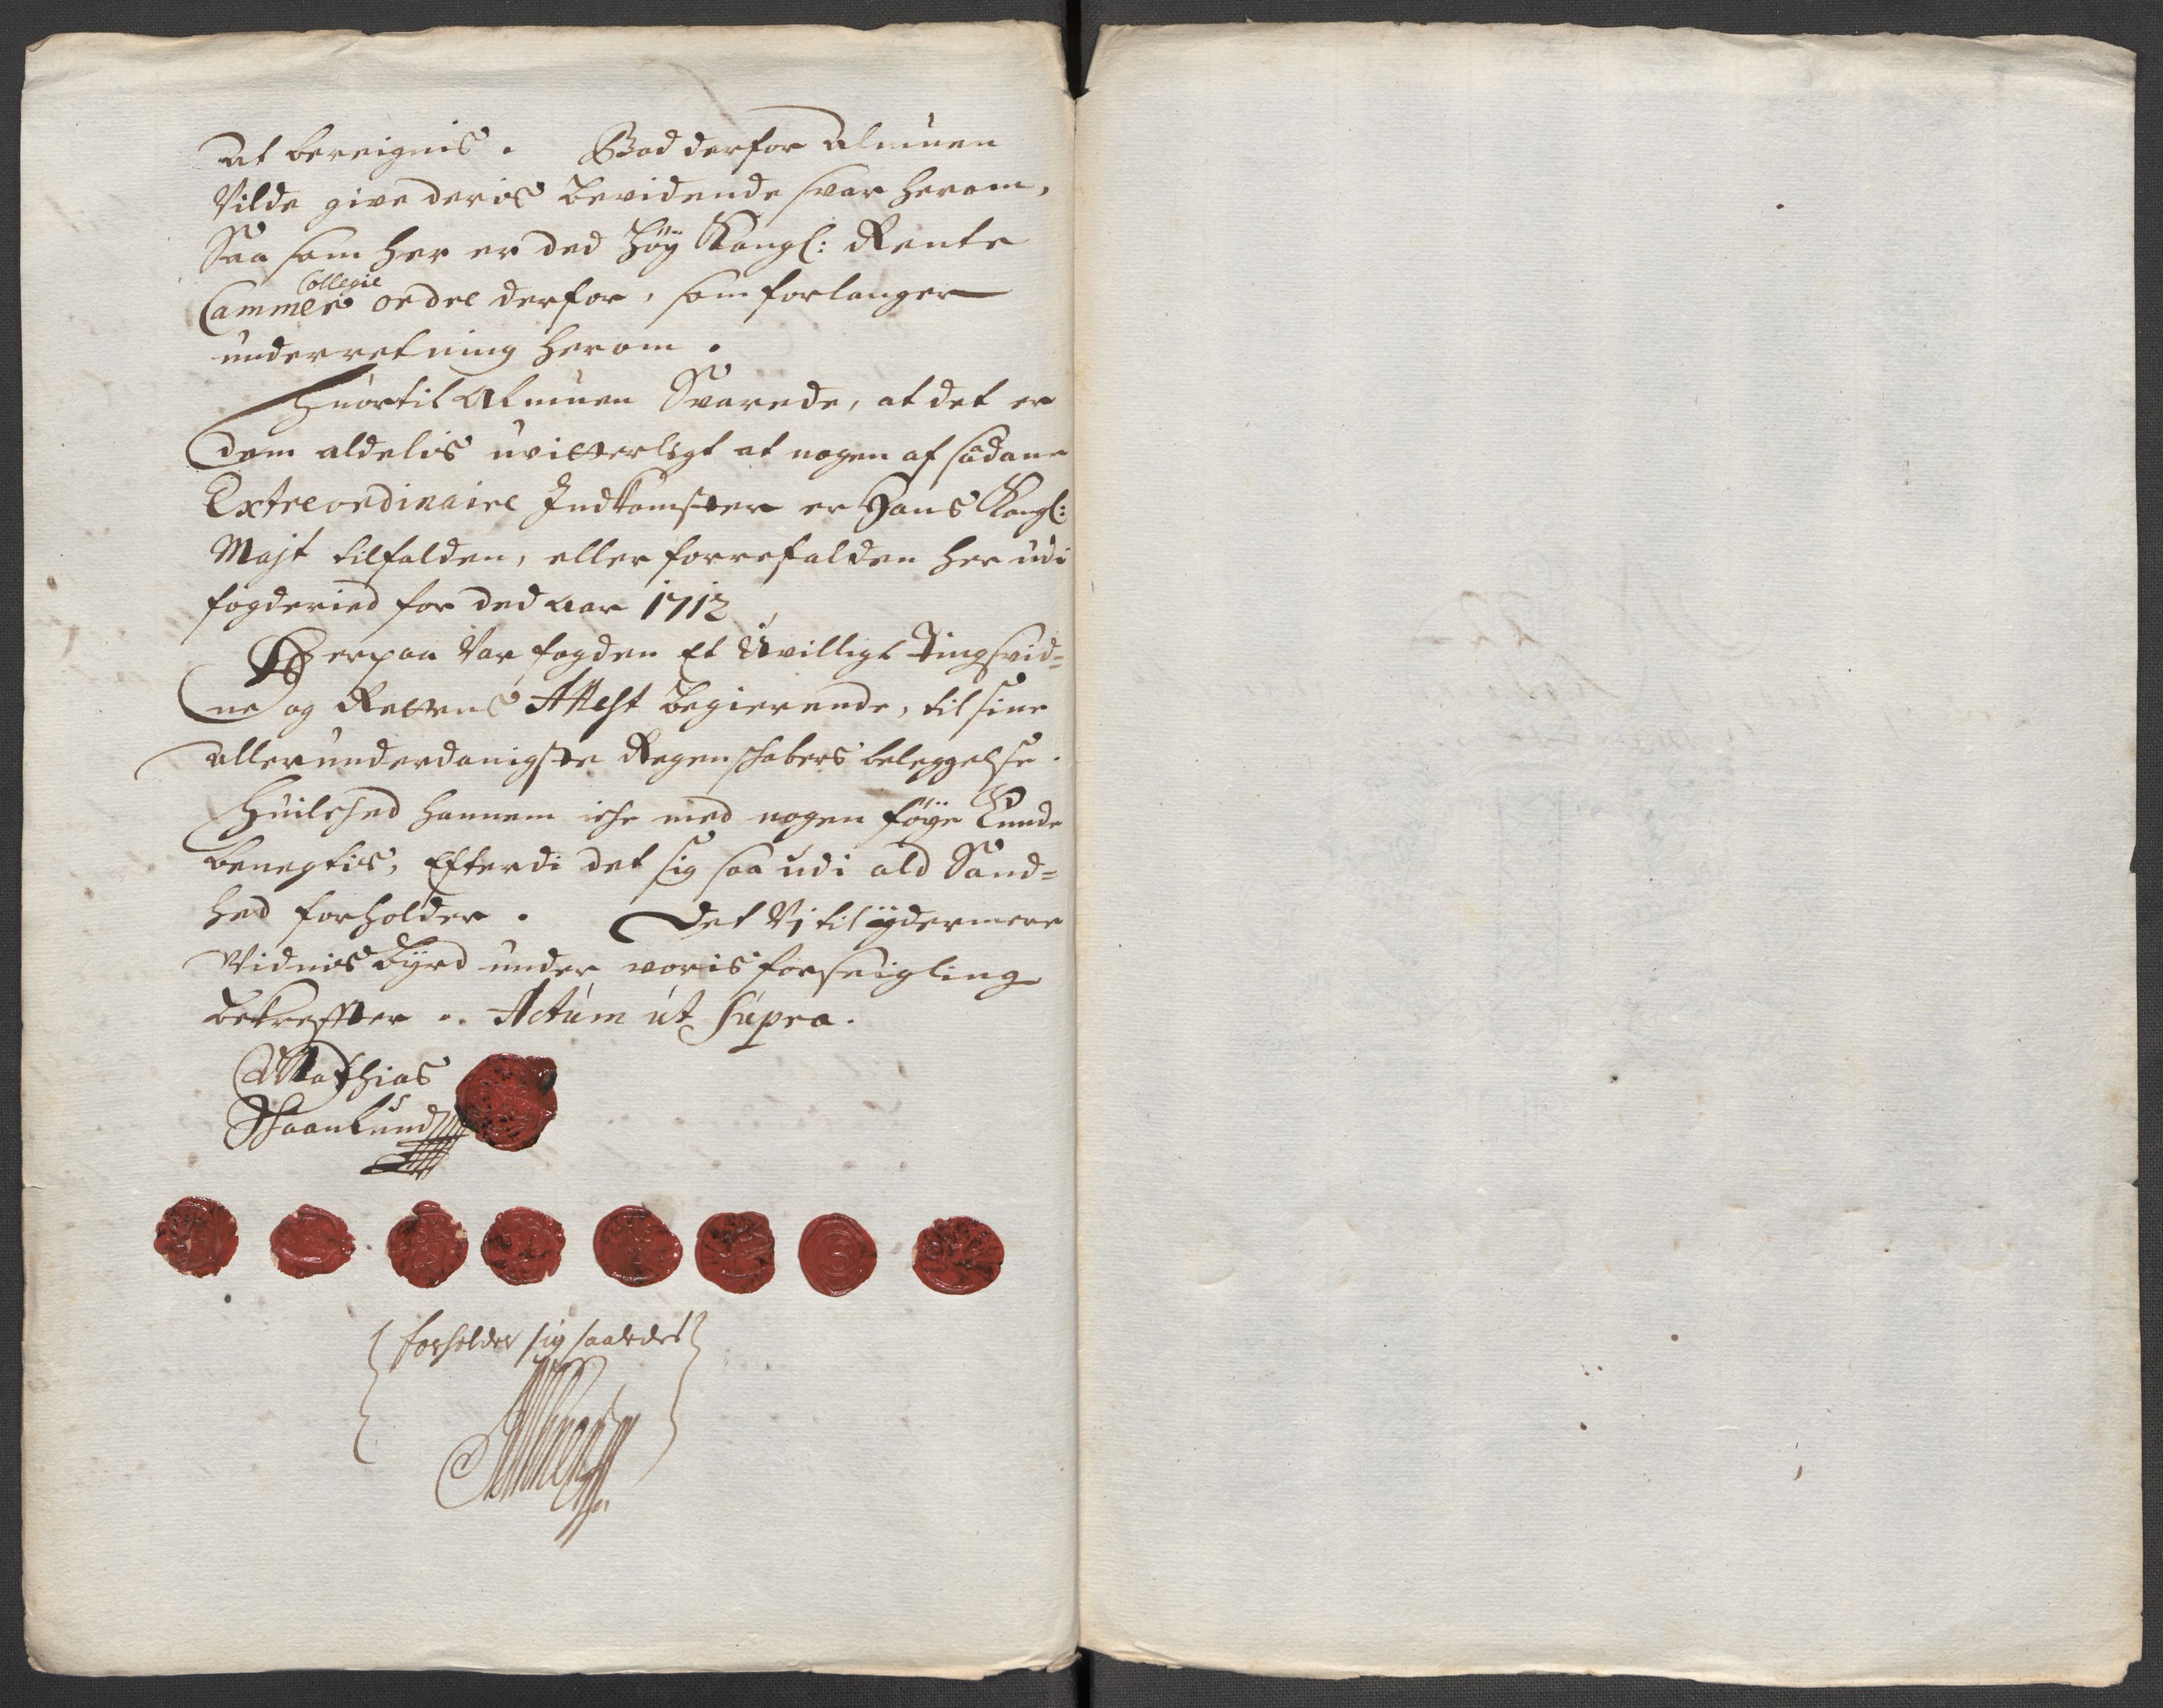 at bereignis. Bad derfor Almuen
Vilde give deris bevidende svar herom,
Saa som her er ded høy Kongl: Rente
Collegie
Cammers ordre derfor, som forlanger
underretning herom.
Huortil Almuen Svarede, at det er
dem aldelis uvitterligt at nogen af sådane
Extreordinaire Indkomster er Hans Kongl:
Majt tilfalden, eller forrefalden her udi
fogderied for ded aar 1712
Herpaa Var fogden Et Uvilligt Tingsvid=
ne og Rettens Attest begierende, til sine
allerunderdanigste Regenskabers beleggelse.
Huilched hannem iche med nogen føye Kunde
benegtis, Efterdi det sig saa udi ald Sand=
hed forholder. Det Vj til ydermere
Vidnisbyrd under voris forseigling
bekreffter. Actum ut supra.
Mathias
forholder sig saaledes